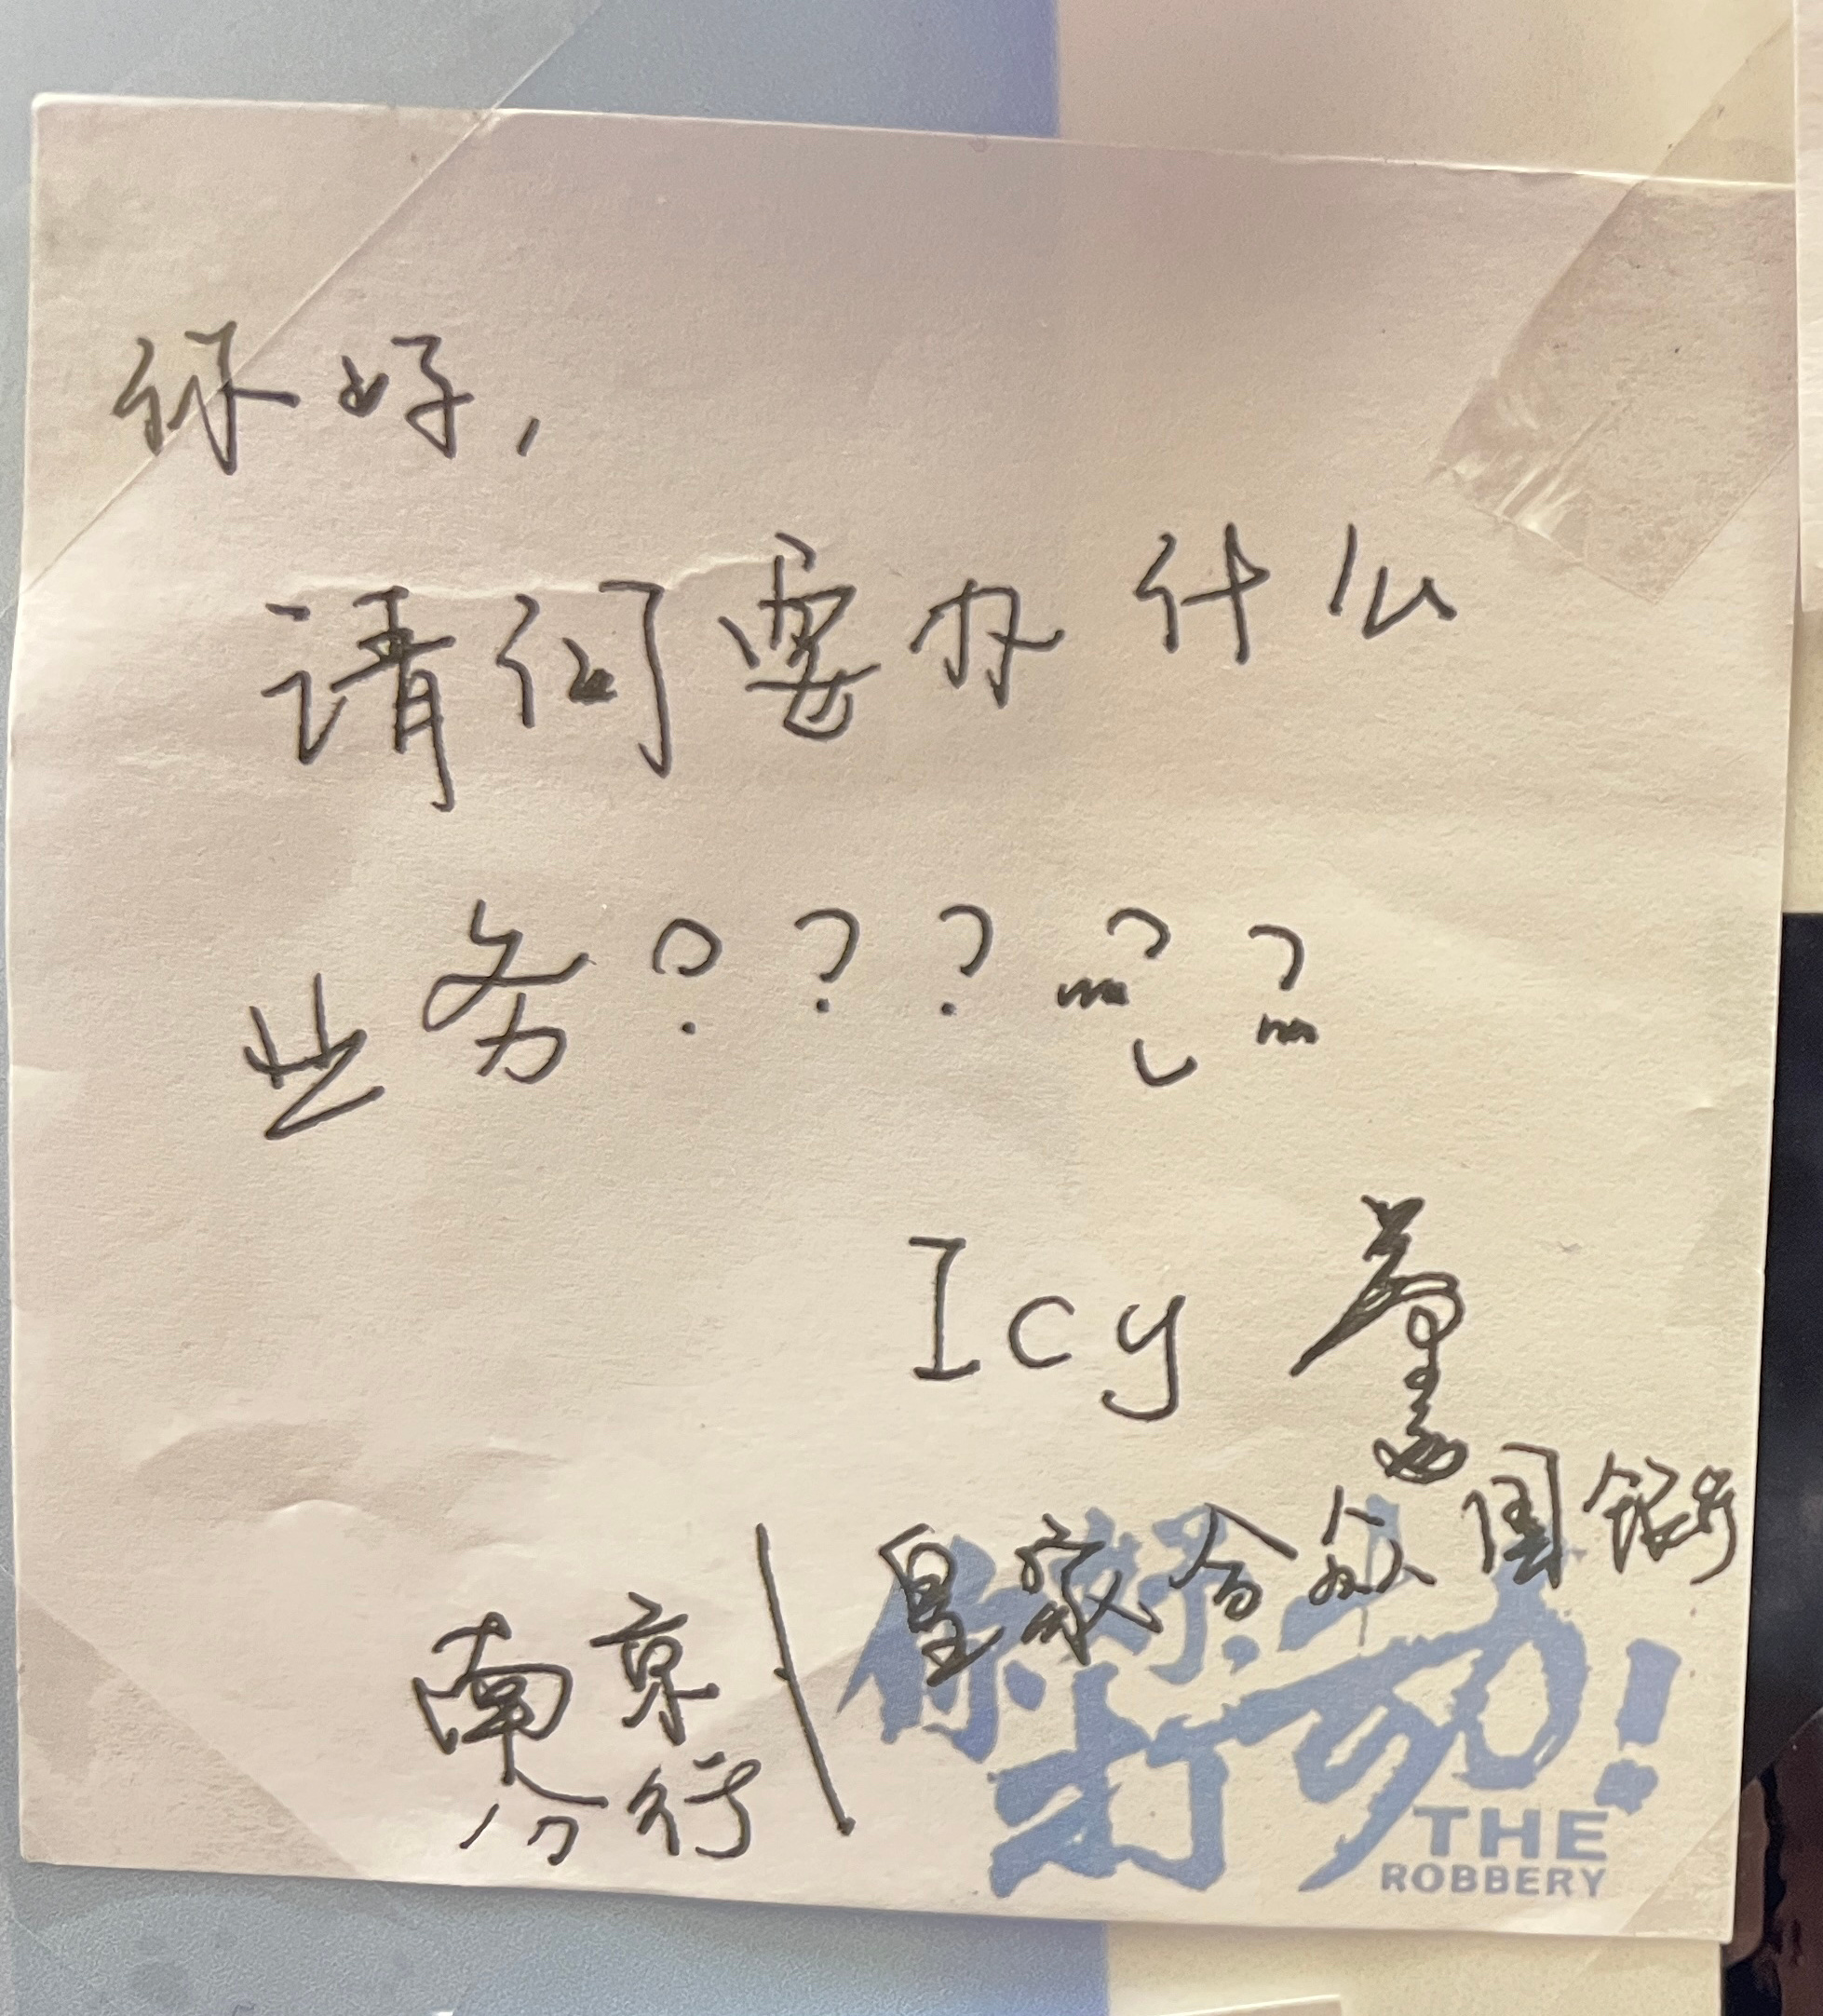 你好,
请问要办什么
业务?????
Icy
皇家合众国银行
南京
分行
你好,打劫!
THE
ROBBERY